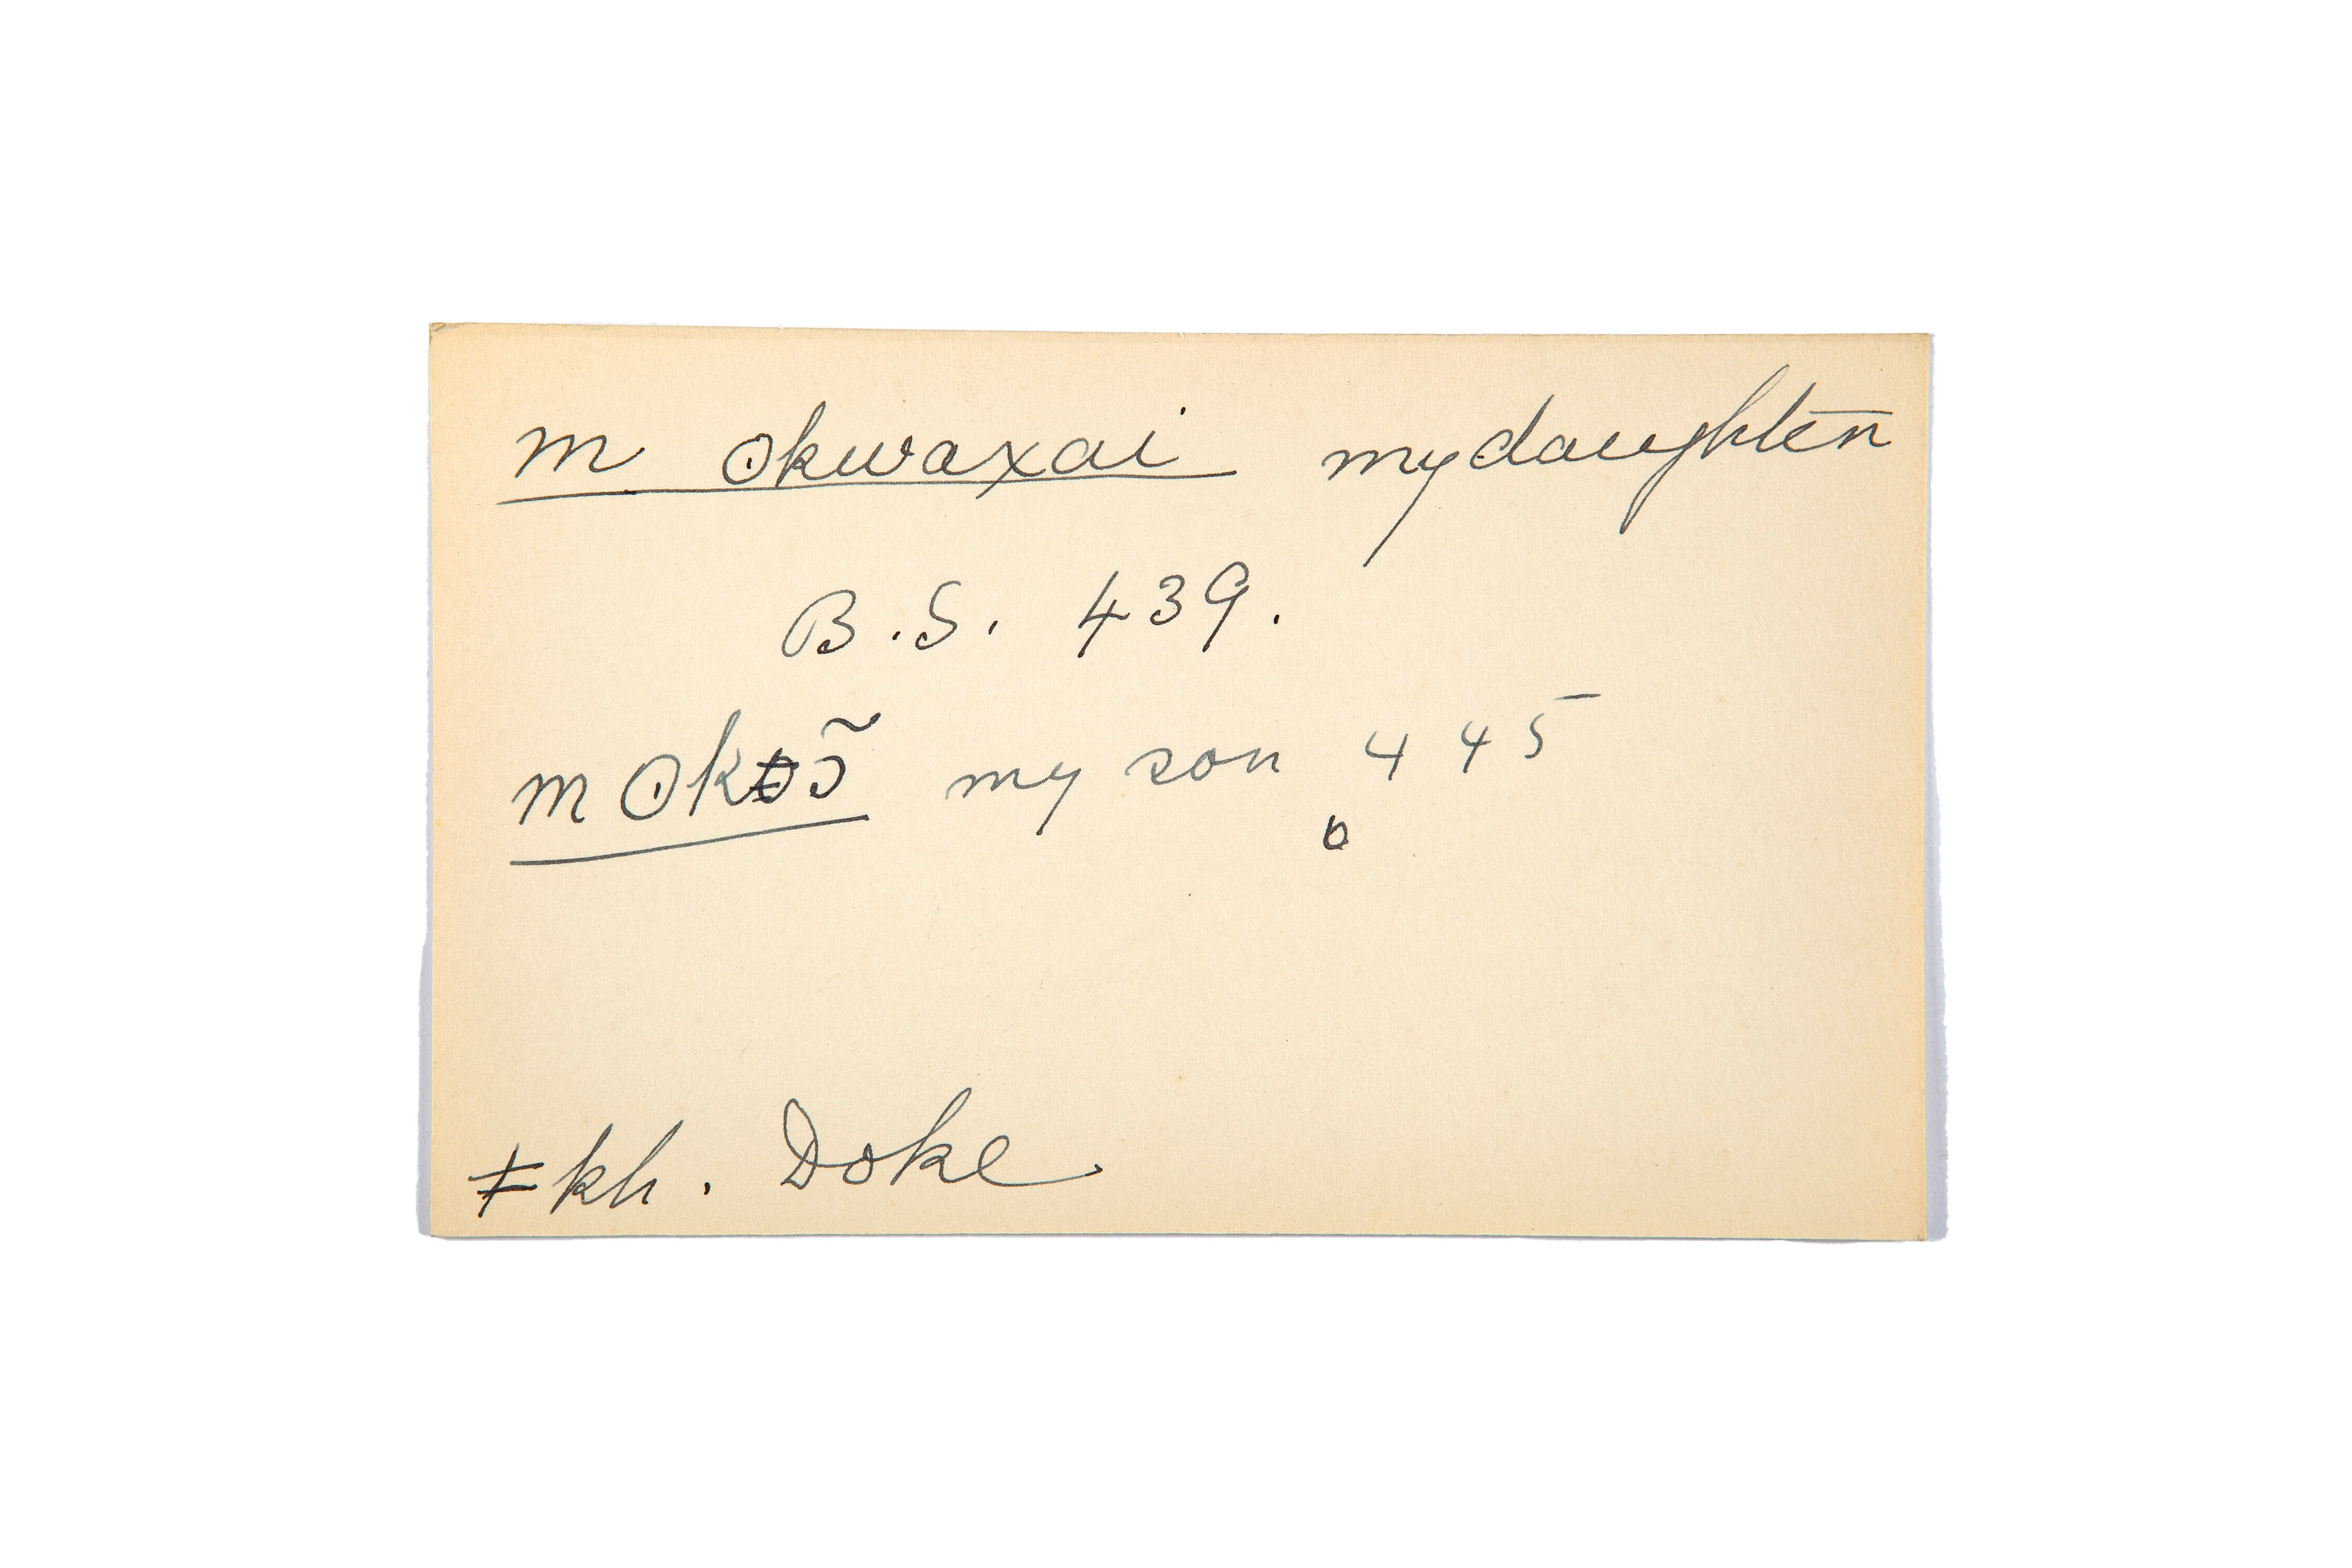 m ʘkwaxai my daughter
B.S. 439.
m ʘkɔ̃ my son 445
o
ǂkh. Doke